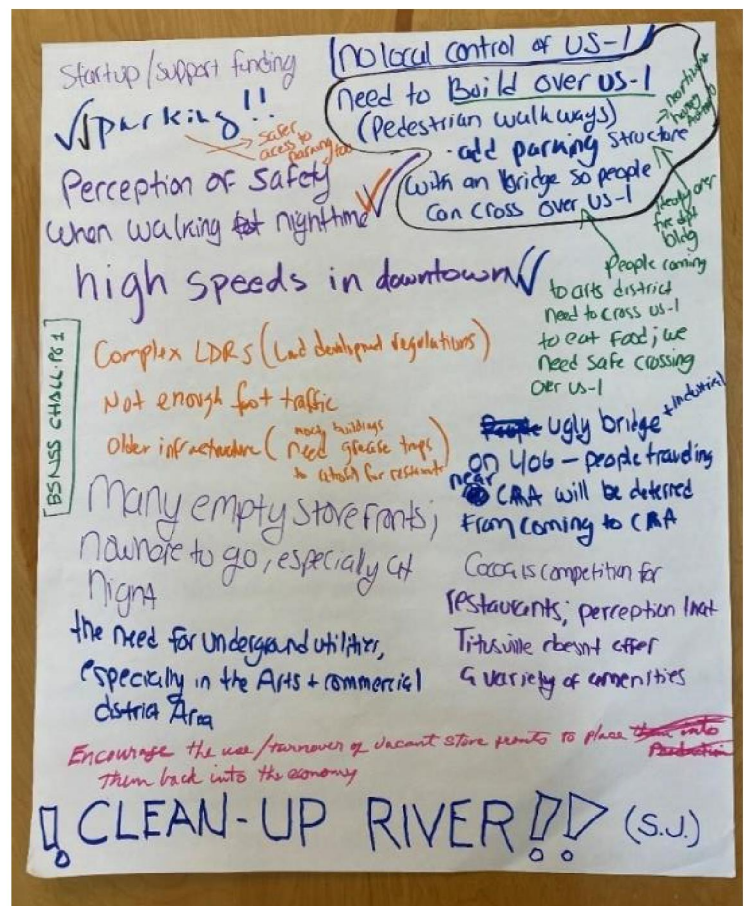 Startup/support funding
parking!!
safer
access to
parking too
Perception of safety
when walking at nighttime
high speeds in downtown
[no local control of US-1
need to Build over US-1
(Pedestrian walkways)
- add parking structure
with an bridge so people
can cross over US-1
People coming
to arts district
need to cross US-1
to eat food; we
need safe crossing
over US-1
BSNSS CHALL. PG 1
Complex LDRs (Land development regulations)
Not enough foot traffic
Older infrastructure (most buildings
need grease traps
to retrofit for restaurants)
Many empty storefronts;
nowhere to go, especially at
night
the need for underground utilities,
especially in the Arts + commercial
district Area
People ugly bridge + Industrial
on 406 - people traveling
near CRA will be deterred
from coming to CRA
Cocoa is competition for
restaurants; perception that
Titusville doesnt offer
a variety of amenities
Encourage the use/turnover of vacant store fronts to place them into
Production
them back into the economy
! CLEAN-UP RIVER!! (S.J.)